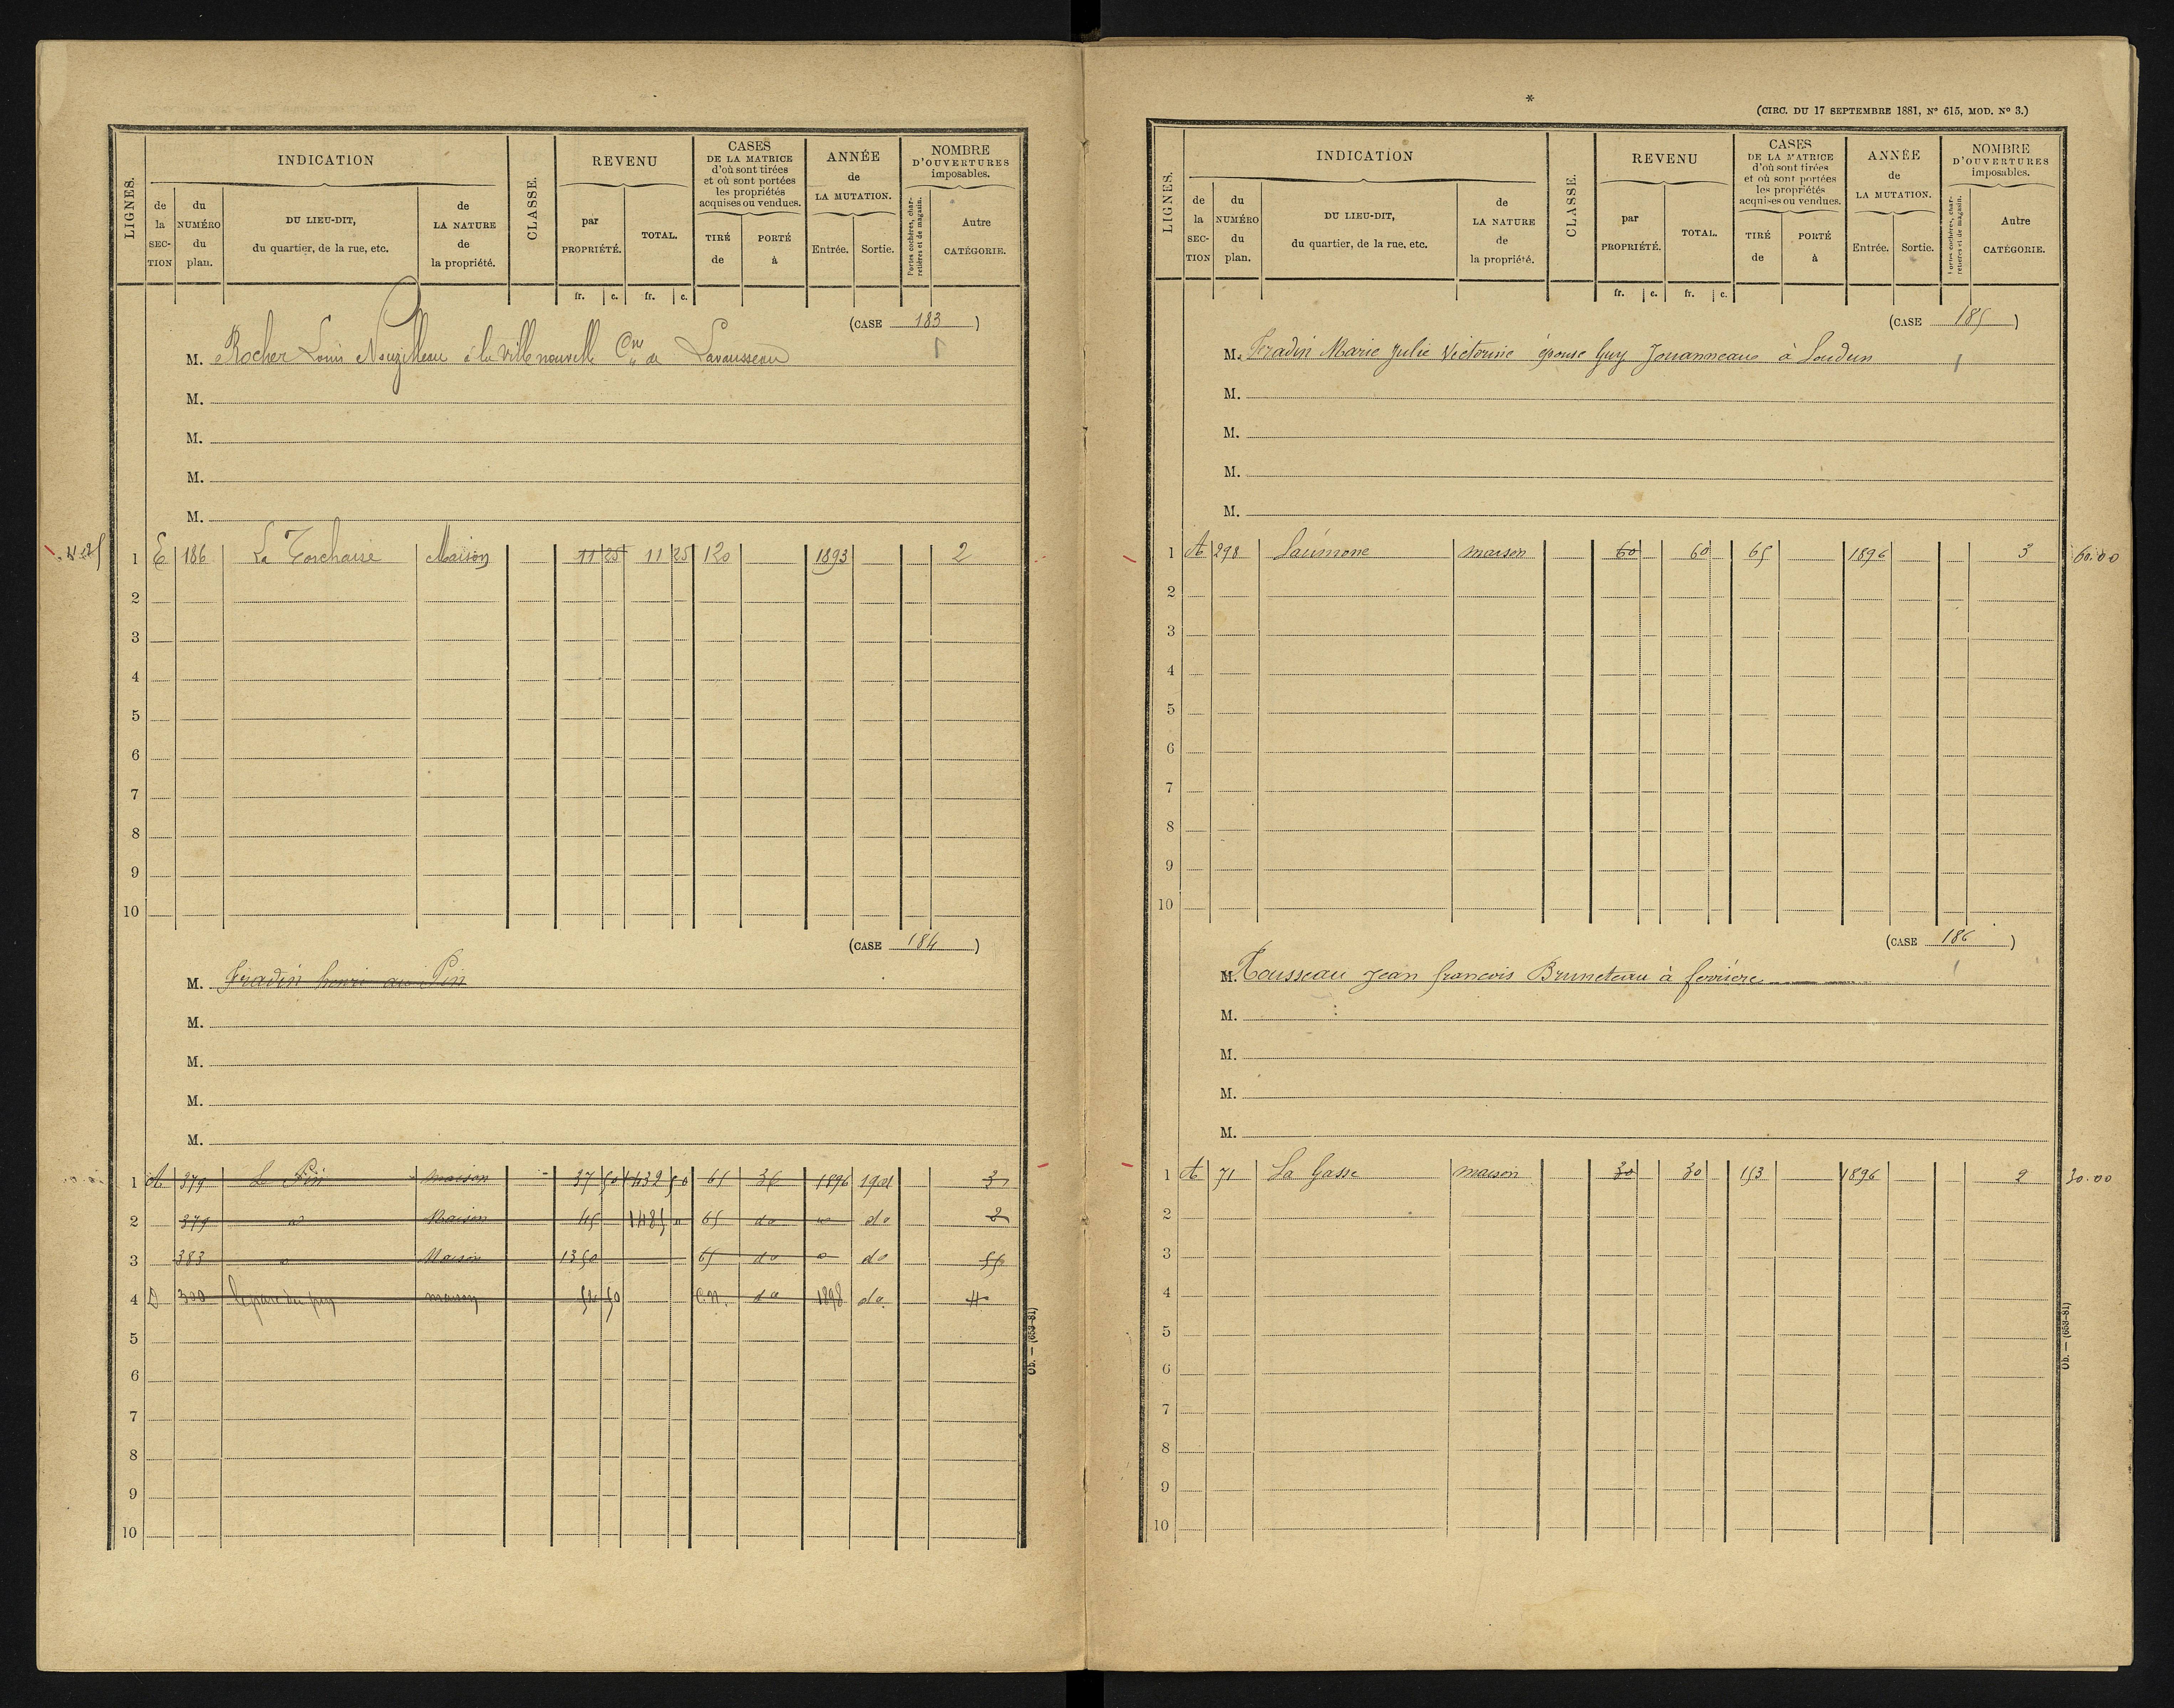 LIGNES.
INDICATION
de la SECTION
du NUMÉRO du plan.
DU LIEU-DIT, du quartier, de la rue, etc.
de LA NATURE de la propriété.
CLASSE.
REVENU
par PROPRIÉTÉ.
TOTAL.
CASES DE LA MATRICE d'où sont tirées et où sont portées les propriétés acquises ou vendues.
TIRÉ de
PORTÉ à
ANNÉE de LA MUTATION.
Entrée.
Sortie.
NOMBRE D'OUVERTURES imposables.
Portes cochères, charretières et de magasin.
Autre CATÉGORIE.
fr. c. fr. c.
(CASE 183)
M. Rocher Louis Nouzilleau à la Ville nouvelle Cne de Lavausseau
M.
M.
M.
M.
1 E 186 La Torchaise Maison 11 25 11 25 120 1893 2
2
3
4
5
6
7
8
9
10
(CASE 184)
M. Fradin henri au Pin
M.
M.
M.
M.
1 A 379 Le Pin maison 37 50 1432 50 65 36 1896 1901 3
2 379 Maison 45 1485 65 do do 2
3 383 Maison 1350 65 do do
4 D 300 maison 50 C.N. do 1898 do
5
6
7
8
9
10
Ob. — (653-81)
*
(CIRC. DU 17 SEPTEMBRE 1881, N° 615, MOD. N° 3.)
LIGNES.
INDICATION
de la SECTION
du NUMÉRO du plan.
DU LIEU-DIT, du quartier, de la rue, etc.
de LA NATURE de la propriété.
CLASSE.
REVENU
par PROPRIÉTÉ.
TOTAL.
CASES DE LA MATRICE d'où sont tirées et où sont portées les propriétés acquises ou vendues.
TIRÉ de
PORTÉ à
ANNÉE de LA MUTATION.
Entrée.
Sortie.
NOMBRE D'OUVERTURES imposables.
Portes cochères, charretières et de magasin.
Autre CATÉGORIE.
fr. c. fr. c.
(CASE 185)
M. Fradin Marie Julie Victorine épouse Guy Jouanneau à Loudun
M.
M.
M.
M.
1 A 298 Laumone maison 60 60 65 1896 3 60.00
2
3
4
5
6
7
8
9
10
(CASE 186)
M. Rousseau Jean francois Bruneteau à ferrière
M.
M.
M.
M.
1 A 71 La Gasse maison 30 30 153 1896 2 30.00
2
3
4
5
6
7
8
9
10
Ob. — (653-81)